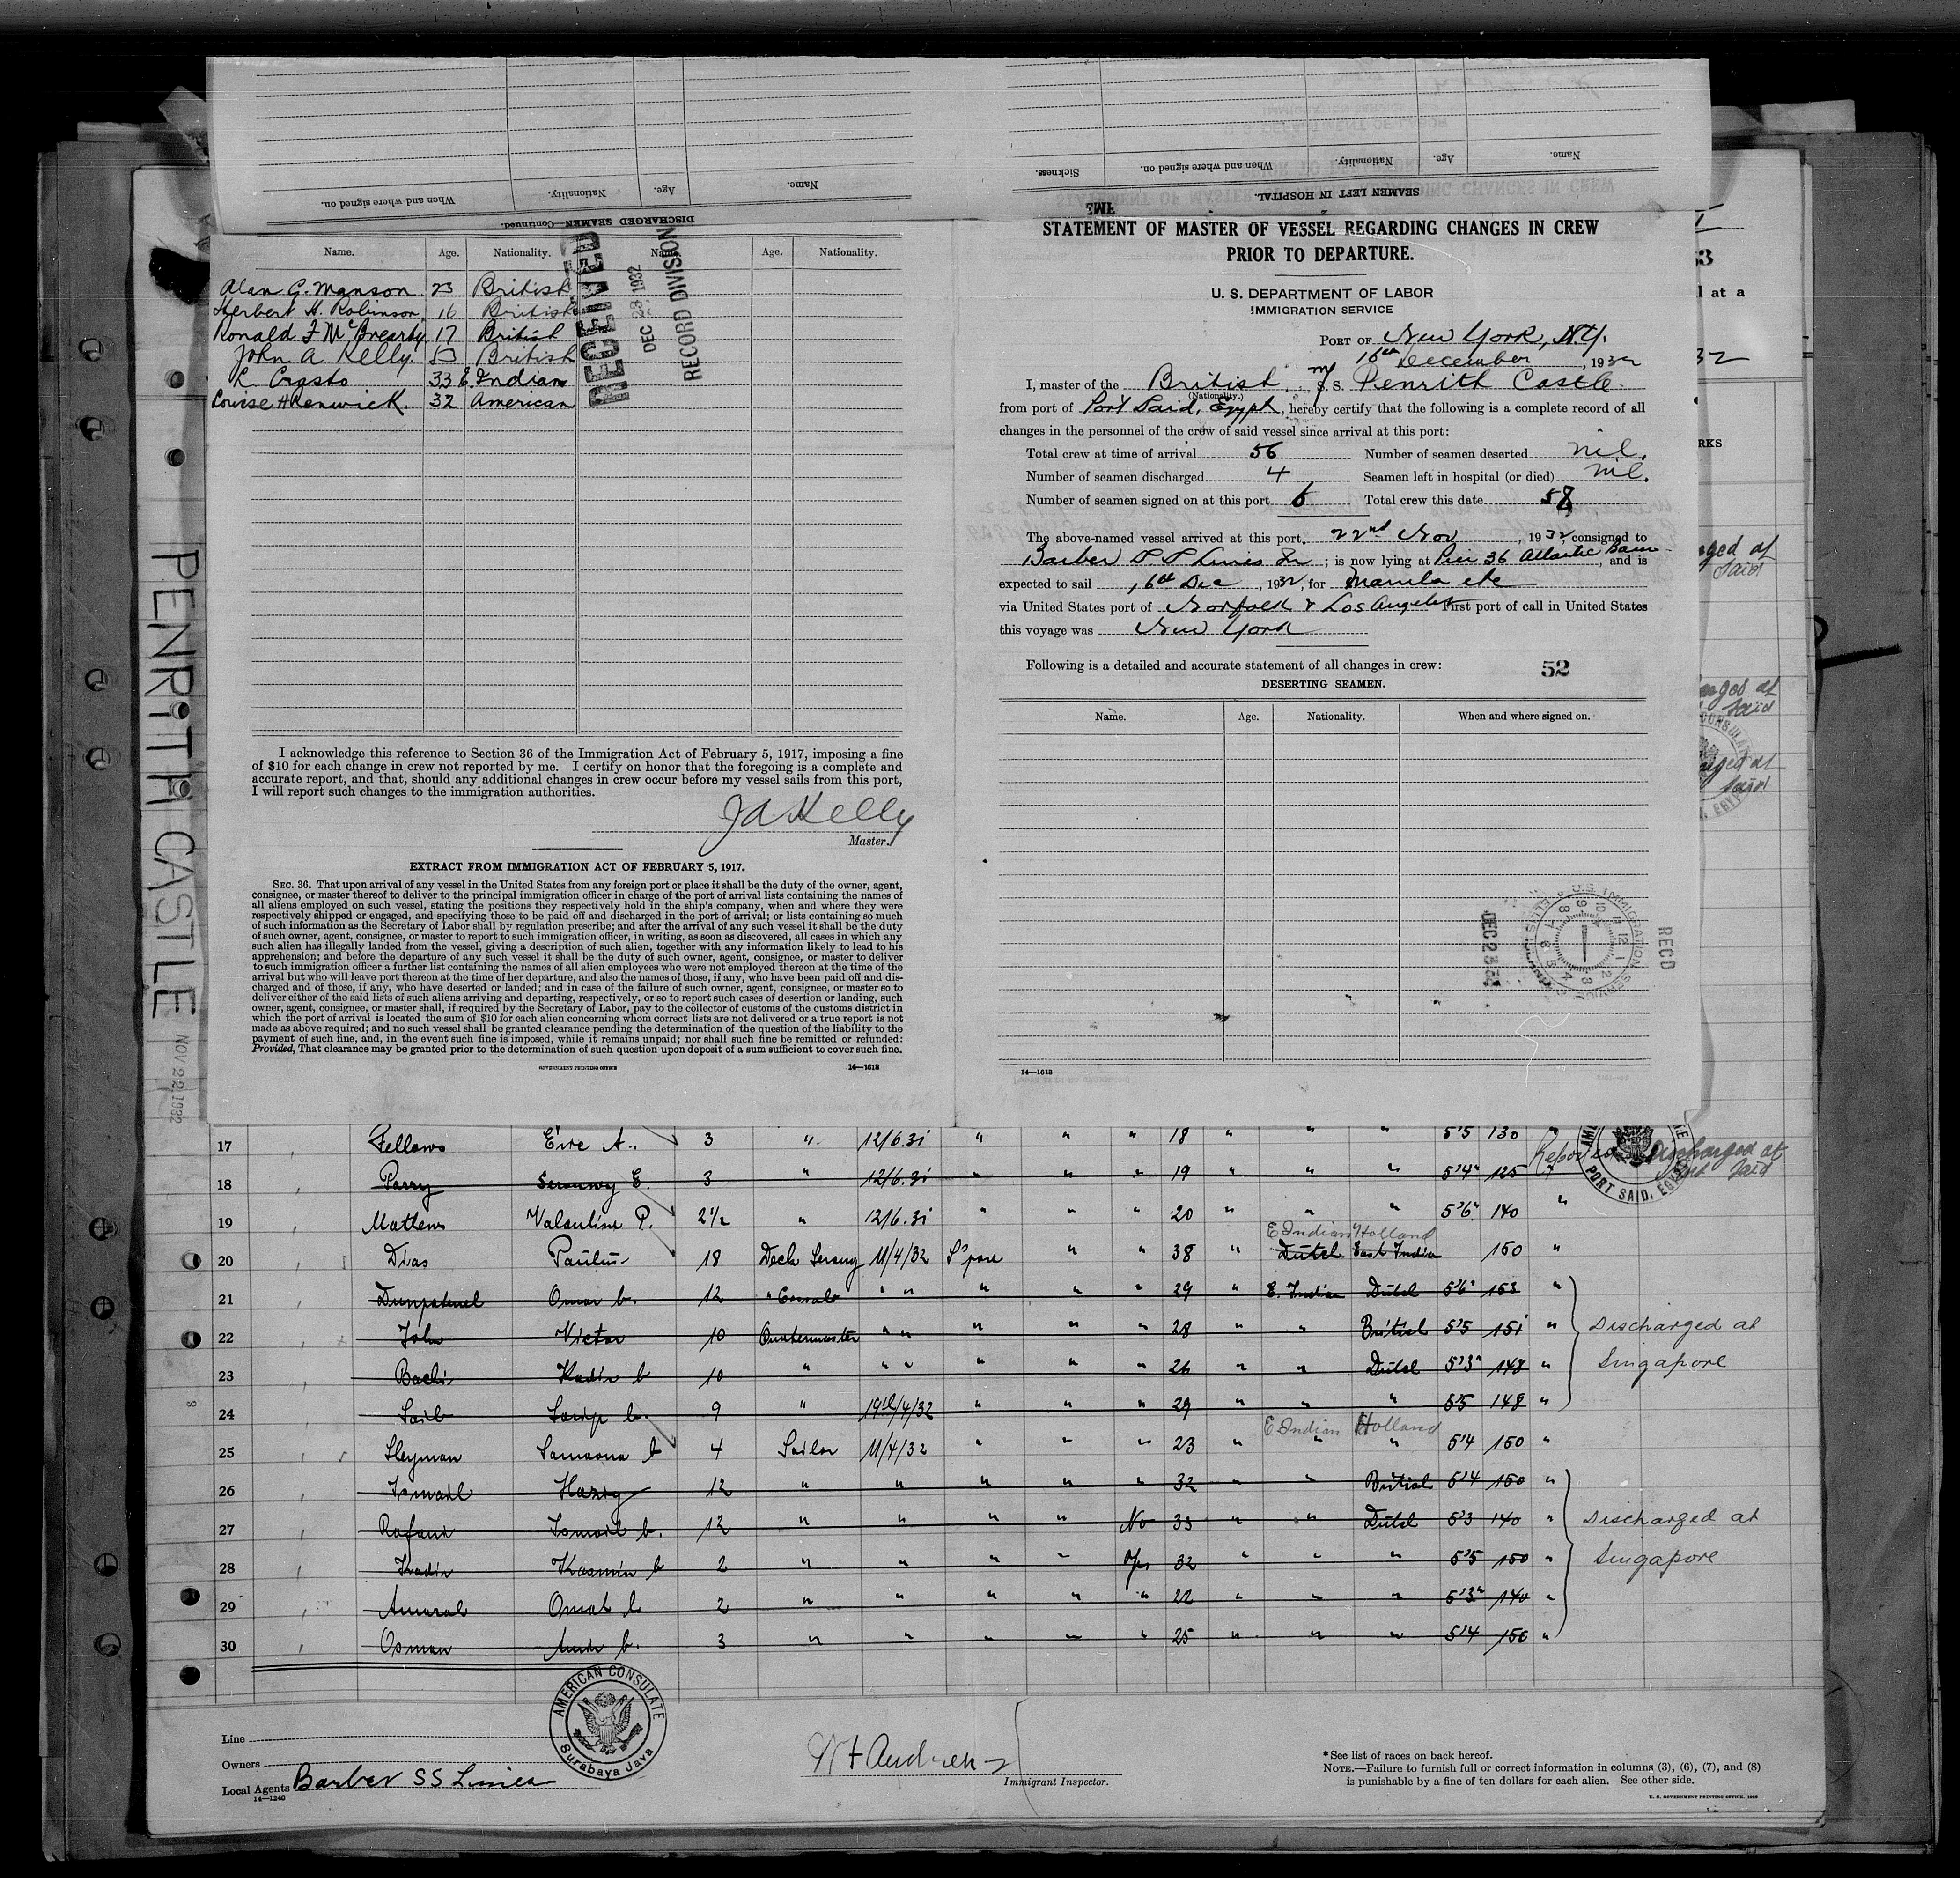 When and where signed on. Nationality. Age. Name.
DISCHARGED SEAMEN—Continued.
Sickness. When and where signed on. Nationality. Age. Name.
SEAMEN LEFT IN HOSPITAL.
Name. Age. Nationality. Name. Age. Nationality.
Alan G. Manson 23 British
Herbert H. Robinson, 16 British
Ronald F McBrearty 17 British
John A Kelly. British
L. Crasto 33 E. Indian
Louise H Renwick. 32 American
RECEIVED
DEC 23 1932
RECORD DIVISION
I acknowledge this reference to Section 36 of the Immigration Act of February 5, 1917, imposing a fine
of $10 for each change in crew not reported by me. I certify on honor that the foregoing is a complete and
accurate report, and that, should any additional changes in crew occur before my vessel sails from this port,
I will report such changes to the immigration authorities.
J A Kelly
Master.
EXTRACT FROM IMMIGRATION ACT OF FEBRUARY 5, 1917.
SEC. 36. That upon arrival of any vessel in the United States from any foreign port or place it shall be the duty of the owner, agent,
consignee, or master thereof to deliver to the principal immigration officer in charge of the port of arrival lists containing the names of
all aliens employed on such vessel, stating the positions they respectively hold in the ship's company, when and where they were
respectively shipped or engaged, and specifying those to be paid off and discharged in the port of arrival; or lists containing so much
of such information as the Secretary of Labor shall by regulation prescribe; and after the arrival of any such vessel it shall be the duty
of such owner, agent, consignee, or master to report to such immigration officer, in writing, as soon as discovered, all cases in which any
such alien has illegally landed from the vessel, giving a description of such alien, together with any information likely to lead to his
apprehension; and before the departure of any such vessel it shall be the duty of such owner, agent, consignee, or master to deliver
to such immigration officer a further list containing the names of all alien employees who were not employed thereon at the time of the
arrival but who will leave port thereon at the time of her departure, and also the names of those, if any, who have been paid off and dis-
charged and of those, if any, who have deserted or landed; and in case of the failure of such owner, agent, consignee, or master so to
deliver either of the said lists of such aliens arriving and departing, respectively, or so to report such cases of desertion or landing, such
owner, agent, consignee, or master shall, if required by the Secretary of Labor, pay to the collector of customs of the customs district in
which the port of arrival is located the sum of $10 for each alien concerning whom correct lists are not delivered or a true report is not
made as above required; and no such vessel shall be granted clearance pending the determination of the question of the liability to the
payment of such fine, and, in the event such fine is imposed, while it remains unpaid; nor shall such fine be remitted or refunded:
Provided, That clearance may be granted prior to the determination of such question upon deposit of a sum sufficient to cover such fine.
GOVERNMENT PRINTING OFFICE 14—1613
STATEMENT OF MASTER OF VESSEL REGARDING CHANGES IN CREW
PRIOR TO DEPARTURE.
U. S. DEPARTMENT OF LABOR
IMMIGRATION SERVICE
PORT OF New York, N.Y.
16th December, 1932
I, master of the British M/S. S. Penrith Castle
(Nationality.)
from port of Port Said, Egypt, hereby certify that the following is a complete record of all
changes in the personnel of the crew of said vessel since arrival at this port:
Total crew at time of arrival 56 Number of seamen deserted nil.
Number of seamen discharged 4 Seamen left in hospital (or died) nil.
Number of seamen signed on at this port 6 Total crew this date 58
The above-named vessel arrived at this port 22nd Nov, 1932, consigned to
Barber S. S Lines Inc; is now lying at Pier 36 Atlantic Basin, and is
expected to sail 16th Dec, 1932, for Manila etc
via United States port of Norfolk & Los Angeles First port of call in United States
this voyage was New York
Following is a detailed and accurate statement of all changes in crew: 52
DESERTING SEAMEN.
Name. Age. Nationality. When and where signed on.
DEC 23 32
U.S. IMMIGRATION SERVICE
RECD
14—1613
PENRITH CASTLE NOV 22 1932
17 Fellows Eire A. 3 " 12/6.31 " " " 18 " " " 5'5 130 "
18 Parry E. 3 " 12/6.31 " " " 19 " " 5'4" 125 " Discharged at Port Said
19 Mathews Valentine P. 2½ " 12/6.31 " " " 20 " " " 5'6" 140 "
E Indian Holland
20 Dias Paulus 18 Deck Serang 11/4/32 S'pore " " 38 " Dutch East India 150 "
21 Omar b. 12 " " " " " " 29 " E. Indian Dutch 5'6" 153 "
22 John Victor 10 Quatermaster " " " " " 28 " " British 5'5 151 " Discharged at
23 Bachi Kadir b 10 " " " " " " 26 " " Dutch 5'3" 148 " Singapore
24 Saib Sarip b. 9 " 19th/4/32 " " " 29 " " " 5'5 148 "
E Indian Holland
25 Sleyman b 4 Sailor 11/4/32 " " " 23 " " " 5'4 150 "
26 Ismail Harry 12 " " " " " 32 " " British 5'4 150 "
27 Rafani Ismail b. 12 " " " " No 33 " " Dutch 5'3 140 " Discharged at
28 Kadir Kasmin b 2 " " " " Yes 32 " " " 5'5 150 " Singapore
29 Amaral Omat b 2 " " " " " 22 " " " 5'3" 140 "
30 Osman Amir b. 3 " " " " " 25 " " " 5'4 150 "
AMERICAN CONSULATE
Surabaya Java
PORT SAID, EGYPT
Line
Owners
Local Agents Barber SS Lines
14—1240
Immigrant Inspector.
*See list of races on back hereof.
NOTE.—Failure to furnish full or correct information in columns (3), (6), (7), and (8)
is punishable by a fine of ten dollars for each alien. See other side.
U. S. GOVERNMENT PRINTING OFFICE